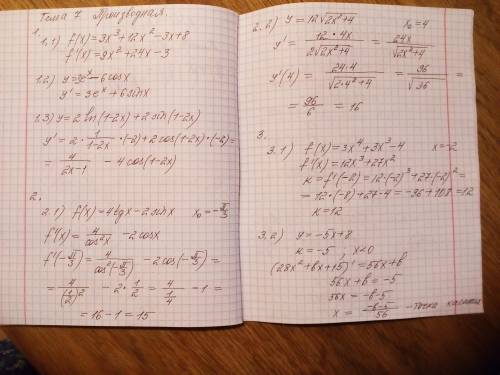 Тема 7 Производная.
1.
1.1) f(x)=3x³+12x²-3x+8
f'(x)=9x²+24x-3
1.2) y=3eˣ-6cosx
y'=3eˣ+6sinx
1.3) y=2ln(1-2x)+2sin(1-2x)
y'=2·1/(1-2x)·(-2)+2cos(1-2x)·(-2)=
=4/(2x-1) - 4cos(1-2x)
2.
2.1) f(x)=4tgx-2sinx x₀=-π/3
f'(x)=4/cos²x -2cosx
f'(-π/3)=4/cos²(-π/3) -2cos(-π/3)=
=4/(1/2)² -2·1/2=4/(1/4) -1=
=16-1=15
2.2) y=12√(2x²+4) x₀=4
y'=12·4x/(2√(2x²+4))=24x/√(2x²+4)
y'(4)=24·4/√(2·4²+4)=96/√36=
=96/6=16
3.
3.1) f(x)=3x⁴+3x³-4 x=-2
f'(x)=12x³+27x²
к=f'(-2)=12·(-2)³+27(-2)²=
=12·(-8)+27·4=-96+108=12
к=12
3.2) y=-5x+8
к=-5, x<0
(28x²+вx+15)'=56x+в
56x+в=-5
56x=-в-5
x=(-в-5)/56 -точка